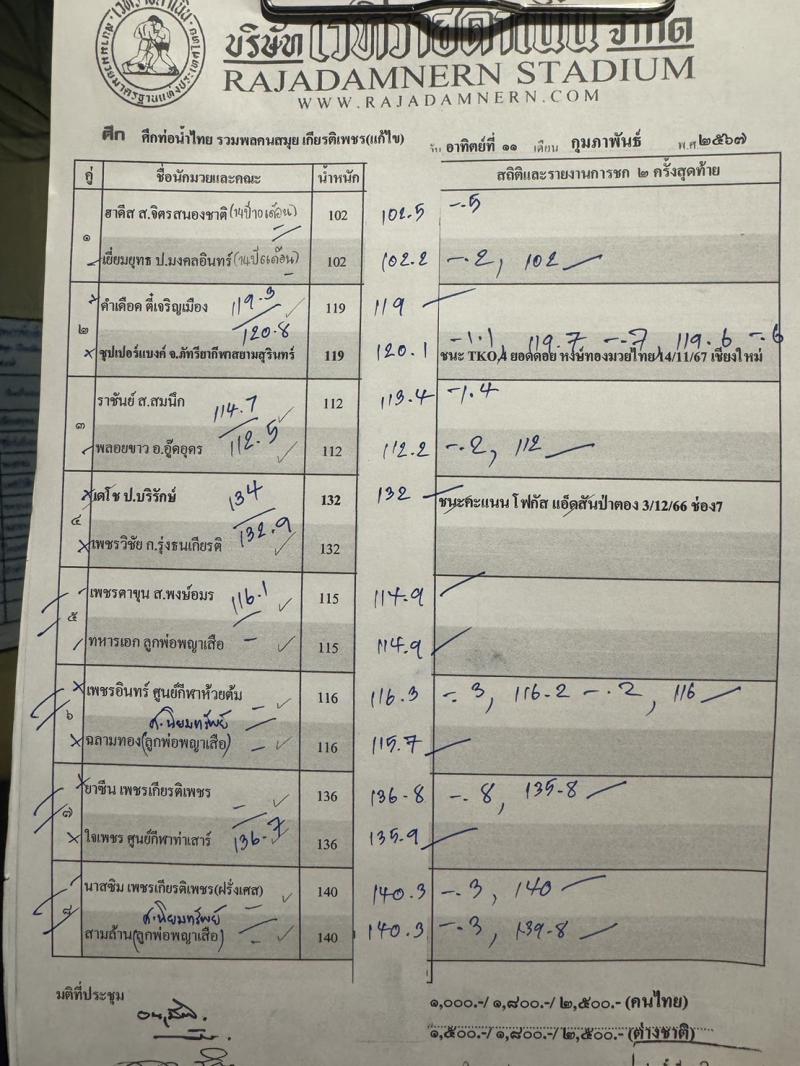 บริษัท เวทีราชดำเนิน จำกัด
RAJADAMNERN STADIUM
WWW.RAJADAMNERN.COM
ศึก ศึกท่อน้ำไทย รวมพลคนสมุย เกียรติเพชร(แก้ไข) วัน อาทิตย์ที่ ๑๑ เดือน กุมภาพันธ์ พ.ศ.๒๕๖๗
คู่ ชื่อนักมวยและคณะ น้ำหนัก สถิติและรายงานการชก ๒ ครั้งสุดท้าย
๑
ฮาดีส ส.จิตรสนองชาติ (14ปี10เดือน) 102 102.5 -.5
เยี่ยมยุทธ ป.มงคลอินทร์ (14ปี6เดือน) 102 102.2 -.2, 102
๒
คำเดือด ตี๋เจริญเมือง 119.3 119 119
120.8 -1.1 119.7 -.7, 119.6 -.6
ซุปเปอร์แบงค์ จ.ภัทรียากีฬาสยามสุรินทร์ 119 120.1 ชนะ TKO,4 ยอดดอย หงษ์ทองมวยไทย 14/11/67 เชียงใหม่
๓
ราชันย์ ส.สมนึก 114.7 112 113.4 -1.4
พลอยขาว อ.อู๊ดอุดร 112.5 112 112.2 -.2, 112
๔
เดโช ป.บริรักษ์ 134 132 132 ชนะคะแนน โฟกัส แอ็ดสันป่าตอง 3/12/66 ช่อง7
เพชรวิชัย ก.รุ่งธนเกียรติ 132.9 132
๕
เพชรดาขุน ส.พงษ์อมร 116.1 115 114.9
ทหารเอก ลูกพ่อพญาเสือ 115 114.9
๖
เพชรอินทร์ ศูนย์กีฬาห้วยต้ม 116 116.3 -.3, 116.2 -.2, 116
ศ.นิยมทรัพย์
ฉลามทอง(ลูกพ่อพญาเสือ) 116 115.7
๗
ยาซีน เพชรเกียรติเพชร 136 136.8 -.8, 135.8
ใจเพชร ศูนย์กีฬาท่าเสาร์ 136.7 136 135.9
๘
นาสซิม เพชรเกียรติเพชร(ฝรั่งเศส) 140 140.3 -.3, 140
ศ.นิยมทรัพย์
สามล้าน(ลูกพ่อพญาเสือ) 140 140.3 -.3, 139.8
มติที่ประชุม
๑,๐๐๐.-/ ๑,๘๐๐.-/ ๒,๕๐๐.- (คนไทย)
๑,๕๐๐.-/ ๑,๘๐๐.-/ ๒,๕๐๐.- (ต่างชาติ)